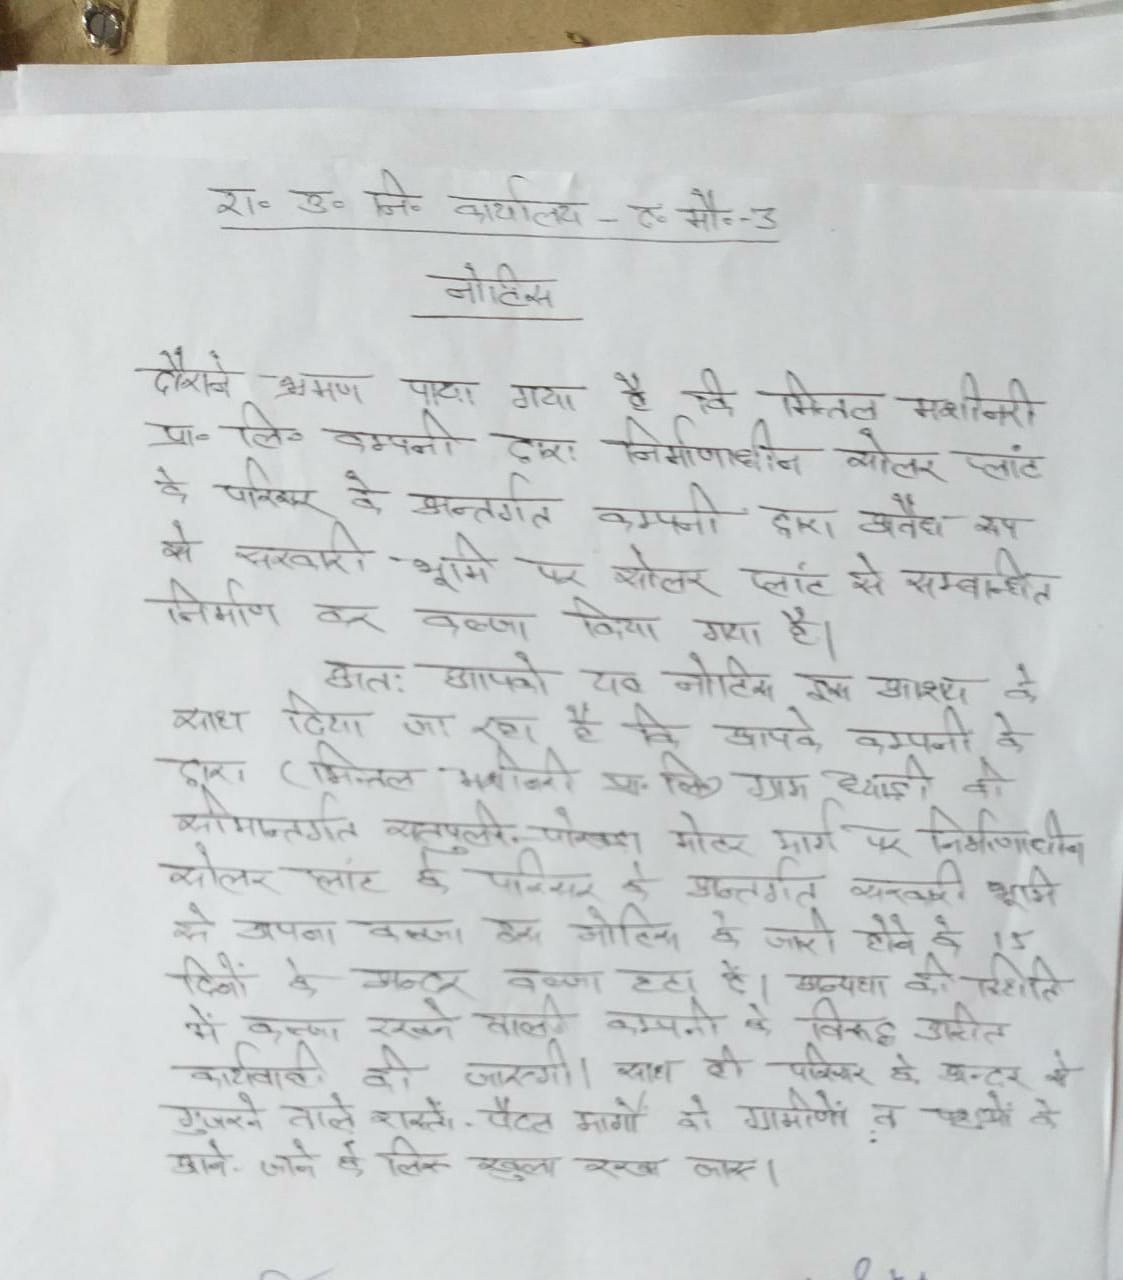 रा० उ० नि० कार्यालय - त० मौ०-3
नोटिस
दौराने भ्रमण पाया गया है कि मित्तल मशीनरी
प्रा० लि० कम्पनी द्वारा निर्माणाधीन सोलर प्लांट
के परिसर के अन्तर्गत कम्पनी द्वारा अवैध रूप
से सरकारी भूमि पर सोलर प्लांट से सम्बन्धित
निर्माण कर कब्जा किया गया है।
अतः आपको यह नोटिस इस आशय के
साथ दिया जा रहा है कि आपके कम्पनी के
द्वारा (मित्तल मशीनरी प्रा. लि) ग्राम की
सीमान्तर्गत सतपुली- मोटर मार्ग पर निर्माणाधीन
सोलर प्लांट के परिसर के अन्तर्गत सरकारी भूमि
से अपना कब्जा इस नोटिस के जारी होने के 15
दिनों के अन्दर कब्जा हटा दें। अन्यथा की स्थिति
में कब्जा रखने वाली कम्पनी के विरुद्ध उचित
कार्यवाही की जाएगी। साथ ही परिसर के अन्दर से
गुजरने वाले रास्तों- पैदल मार्गों को ग्रामीणों व पशुओं के
आने- जाने के लिए खुला रखा जाए।